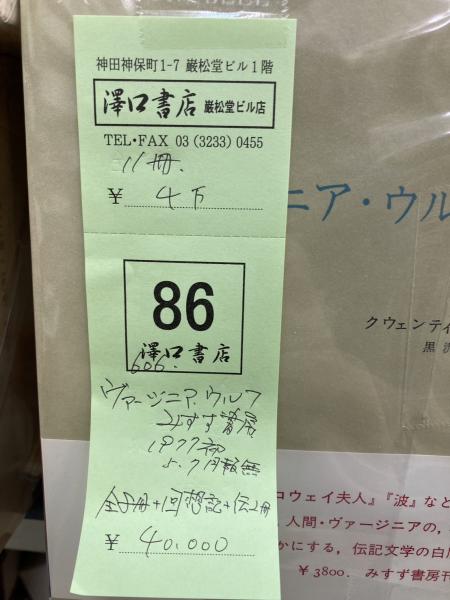 神田神保町1-7 巌松堂ビル1階
澤口書店 巌松堂ビル店
TEL・FAX 03 (3233) 0455
11冊.
¥ 4万
86
澤口書店
606.
ヴァージニア.ウルフ
みすず書房
1977初
5.7月報無
全8冊+回想記+伝2冊
¥ 40.000
ニア・ウル
クウェンティ
黒
ロウェイ夫人』『波』など
人間・ヴァージニアの,
かにする, 伝記文学の白眉
¥3800. みすず書房刊